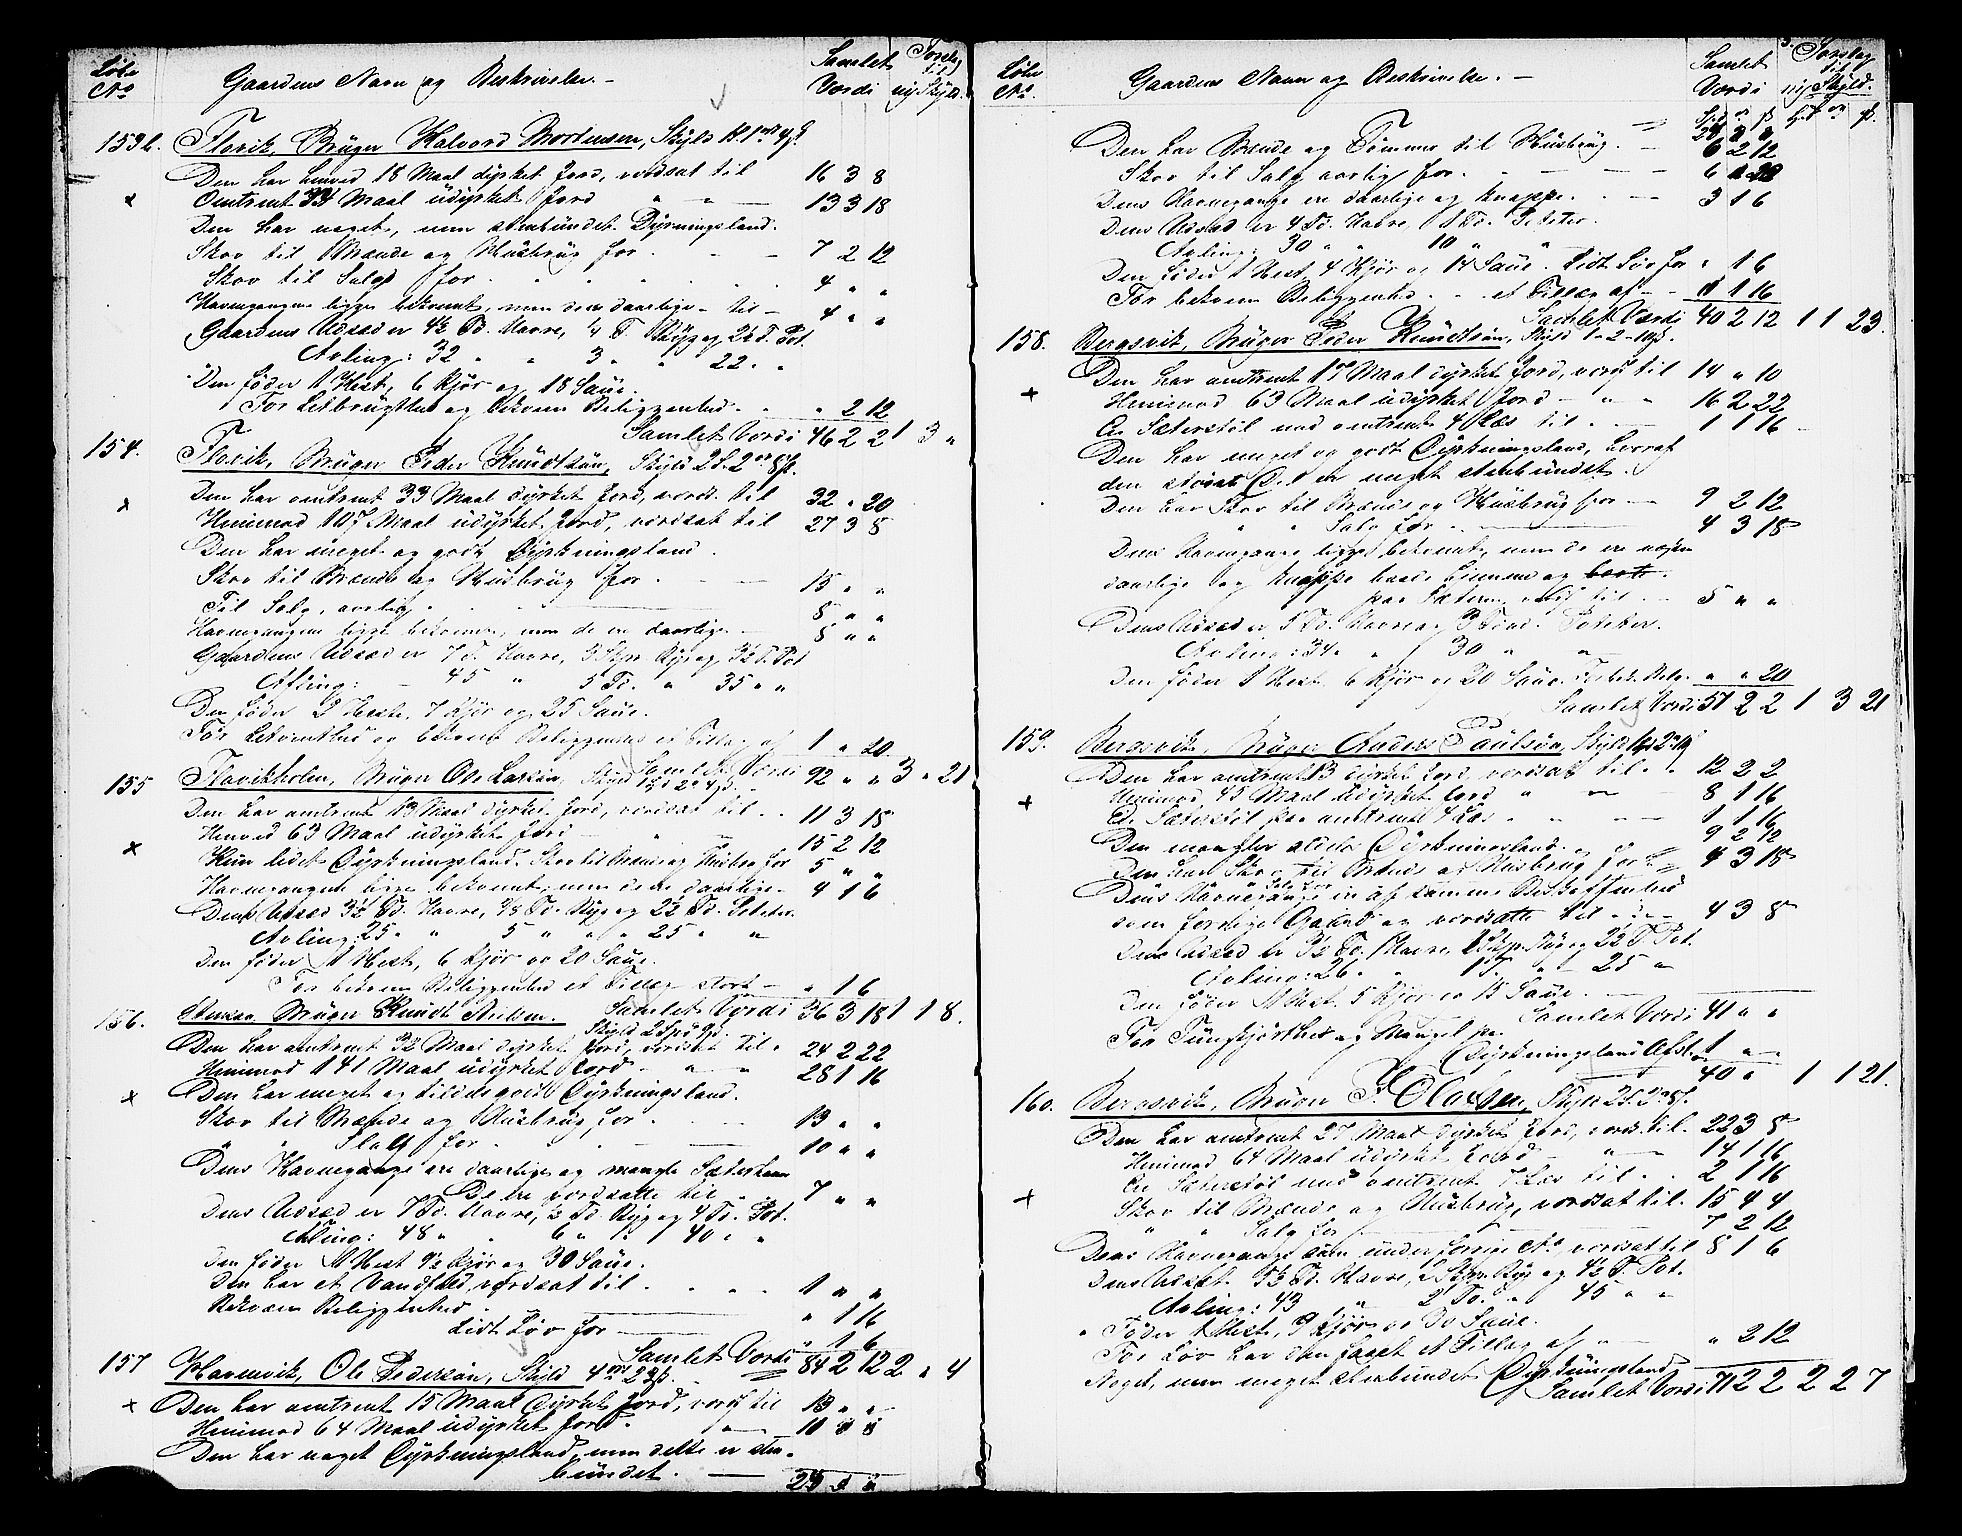 Løbe No Gaardens Navn og Beskrivelse. Samlet Værdi Forslag til ny Skyld.
153 b. Flovik, Bruger Halvord Mortensen, Skyld
Den har hened 18 Maal dyrket Jord, værdsat til 16 3 8
Omtrent 34 Maal udyrket Jord " " 13 3 18
Den har noget, men stenbundet Dyrkningsland.
Skov til Brænde og Husbrug for 7 2 12
Skov til Salg for 4 " "
Havnegangene ligge bekvemt, men dere daarlige til 4 " "
Gaardens Udsæd er 4½ Td. Havre, ¼ T. Byg og 2½ T. Pot.
Avling: 32 " " 3 " " 22 " "
Den føder 1 Hest, 6 Kjør og 18 Saue.
For Letbrugthed og bekvem Beliggenhed " 2 12
Samlet Værdi 46 2 2 1 3 "
154. Flovik, Bruger Peder Knudtsøn, Skyld
Den har omtrent 33 Maal dyrket Jord, værds. til 32 " 20
Henimod 107 Maal udyrket Jord, værdsat til 27 3 8
Den har meget og godt Dyrkningsland.
Skov til Brænde og Husbrug for 15 " "
Til Salg, aarlig 8 " "
Havnegangene ligge bekvemt, men de ere daarlige 8 " "
Gaardens Udsæd er 7 T. Havre, 3 Skpr. Byg og 3½ T. Pot
Afling: 45 " 5 Td. " 35 " "
Den føder 2 Heste, 7 Kjør og 25 Saue.
For Letvinthed og bekvem Beliggenhed et Tillæg af 1 " 20
Samlet Værdi 92 " " 3 " 21
155 Flovikholm, Bruger Ole Larsen, Skyld
Den har omtrent 13 Maal dyrket Jord, værdsat til 11 3 18
Henved 63 Maal udyrket Jord 15 2 12
Kun lidet Dyrkningsland. Skov til Brænde og Husbrug for 5 " "
Havnegangene ligge bekvemt, men de ere daarlige 4 1 6
Dens Udsæd 3½ Td. Havre, Td. Byg og 2½ Td. Poteter.
Avling: 25 " " 5 " " " 25 " "
Den føder 1 Hest, 6 Kjør og 20 Saue.
For bekvem Beliggenhed et Tillæg stort " 1 6
Samlet Værdi 36 3 18 1 1 8.
156. Bruger Knudt
Den har omtrent 32 Maal dyrket Jord, værdsat til 24 2 22
Henimod 141 Maal udyrket Jord " " 28 1 16
Den har meget og tildels godt Dyrkningsland.
Skov til Brænde og Husbrug for 13 " "
" " Salg for 10 " "
Dens Havnegange ere daarlige og mangle Sæterhavn
De ere værdsatte til 7 " "
Dens Udsæd er 7 Td. Havre, ½ Td. Byg og 4 Td. Pot.
Avling: 48 " " 6 " " 40 " "
Den føder 1 Hest 9½ Kjør og 30 Saue.
Den har et Vandfald, værdsat til 1 " "
Bekvem Beliggenhed " 1 16
Lidt Løv for " 1 6
Samlet Værdi 84 2 12 2 " 4
157 Ole Pedersøn, Skyld
Den har omtrent 15 Maal dyrket Jord, værds. til 13 " "
Henimod 64 Maal udyrket Jord. " 11
Den har noget Dyrkningsland, men dette er sten-
bundet. 24
Løbe No. Gaardens Navn og Beskrivelse. Samlet Værdi Forslag til ny Skyld.
Den har Brænde og Tømmer til Husbrug. 6 2 12
Skov til Salg aarlig for 6
Dens Havnegange ere daarlige og knappe. 3 1 6
Dens Udsæd er 4 Td. Havre, 1 Td. Poteter.
Avling: 30 " " 10 " "
Den føder 1 Hest, 4 Kjør og 14 Saue. Lidt Løv for " 1 6
For bekvem Beliggenhd. et Tillæg af 1 16
Samlet Værdi 40 2 12 1 1 23.
158. Bergsvik, Bruger Peder Knudtsøn, Skyld
Den har omtrent 17 Maal dyrket Jord, værds. til 14 " 10
Henimod 63 Maal udyrket Jord " " 16 2 22
En Sæterstøl med omtrent 4 Læs til 1 1 16
Den har meget og godt Dyrkningsland, hvoraf
den største Del er meget stenbundet.
Den har Skov til Brænde og Husbrug for 9 2 12
" " Salg for 4 3 18
Dens Havnegange ligge bekvemt, men de ere nogen
daarlige og knappe baade hjemme og borte.
paa Sæteren, værds. til 5 " "
Dens Udsæd er 5 Td. Havre og 3 Tdr. Poteter.
Avling: 34 " " 30 " "
Den føder 1 Hest 6 Kjør og 20 Saue. For bek. Bel. " " 20
Samlet Værdi 51 2 2 1 3 21
159. Bergsvik, Bruger Anders Paulsøn, Skyld
Den har omtrent 13 dyrket Jord, værdsat til 12 2 2
Henimod 45 Maal udyrket Jord " " 8 1 16
En Sæterstøl paa omtrent 4 Læs " 1 1 16
Den mangler aldeles Dyrkningsland. 9 2 12
Den har Skov til Brænde og Husbrug for 4 3 18
Salg for
Dens Havnegange er af samme Beskaffenhed
som forrige Gaard og værdsatte til 4 3 8
Dens Udsæd er 3½ Td. Havre, Skp. Byg og 2½ T. Pot.
Avling: 26 " " 1 T. " 25 "
Den føder 1 Hest, 5 Kjør og 15 Saue.
Samlet Værdi 41 " "
For Tungkjørthed og Mangel paa
Dyrkningsland Afsl. 1 " "
40 " 1 1 21.
160. Bergsvik, Bruger J. Olavsen, Skyld
Den har omtrent 27 Maal dyrket Jord, værds. til 22 3 8
Henimod 64 Maal udyrket Jord " 14 1 16
En Sæterstøl med omtrent 7 Læs til 2 1 16
Skov til Brænde og Husbrug, værdsat til 15 4 4
" " Salg for 7 2 12
Dens Havnegange som under forrige No, værdsat til 8 1 6
Dens Udsæd 5½ Td. Havre, Skpr. Byg og 4½ T. Pot.
Avling: 43 " 2 Td. " 45 " "
Føder 1 Hest, 9 Kjør og 30 Saue.
For Løv har den faaet et Tillæg af " 2 12
Noget, men meget stenbundet Dyrkningsland
Samlet Værdi 71 2 2 2 2 7